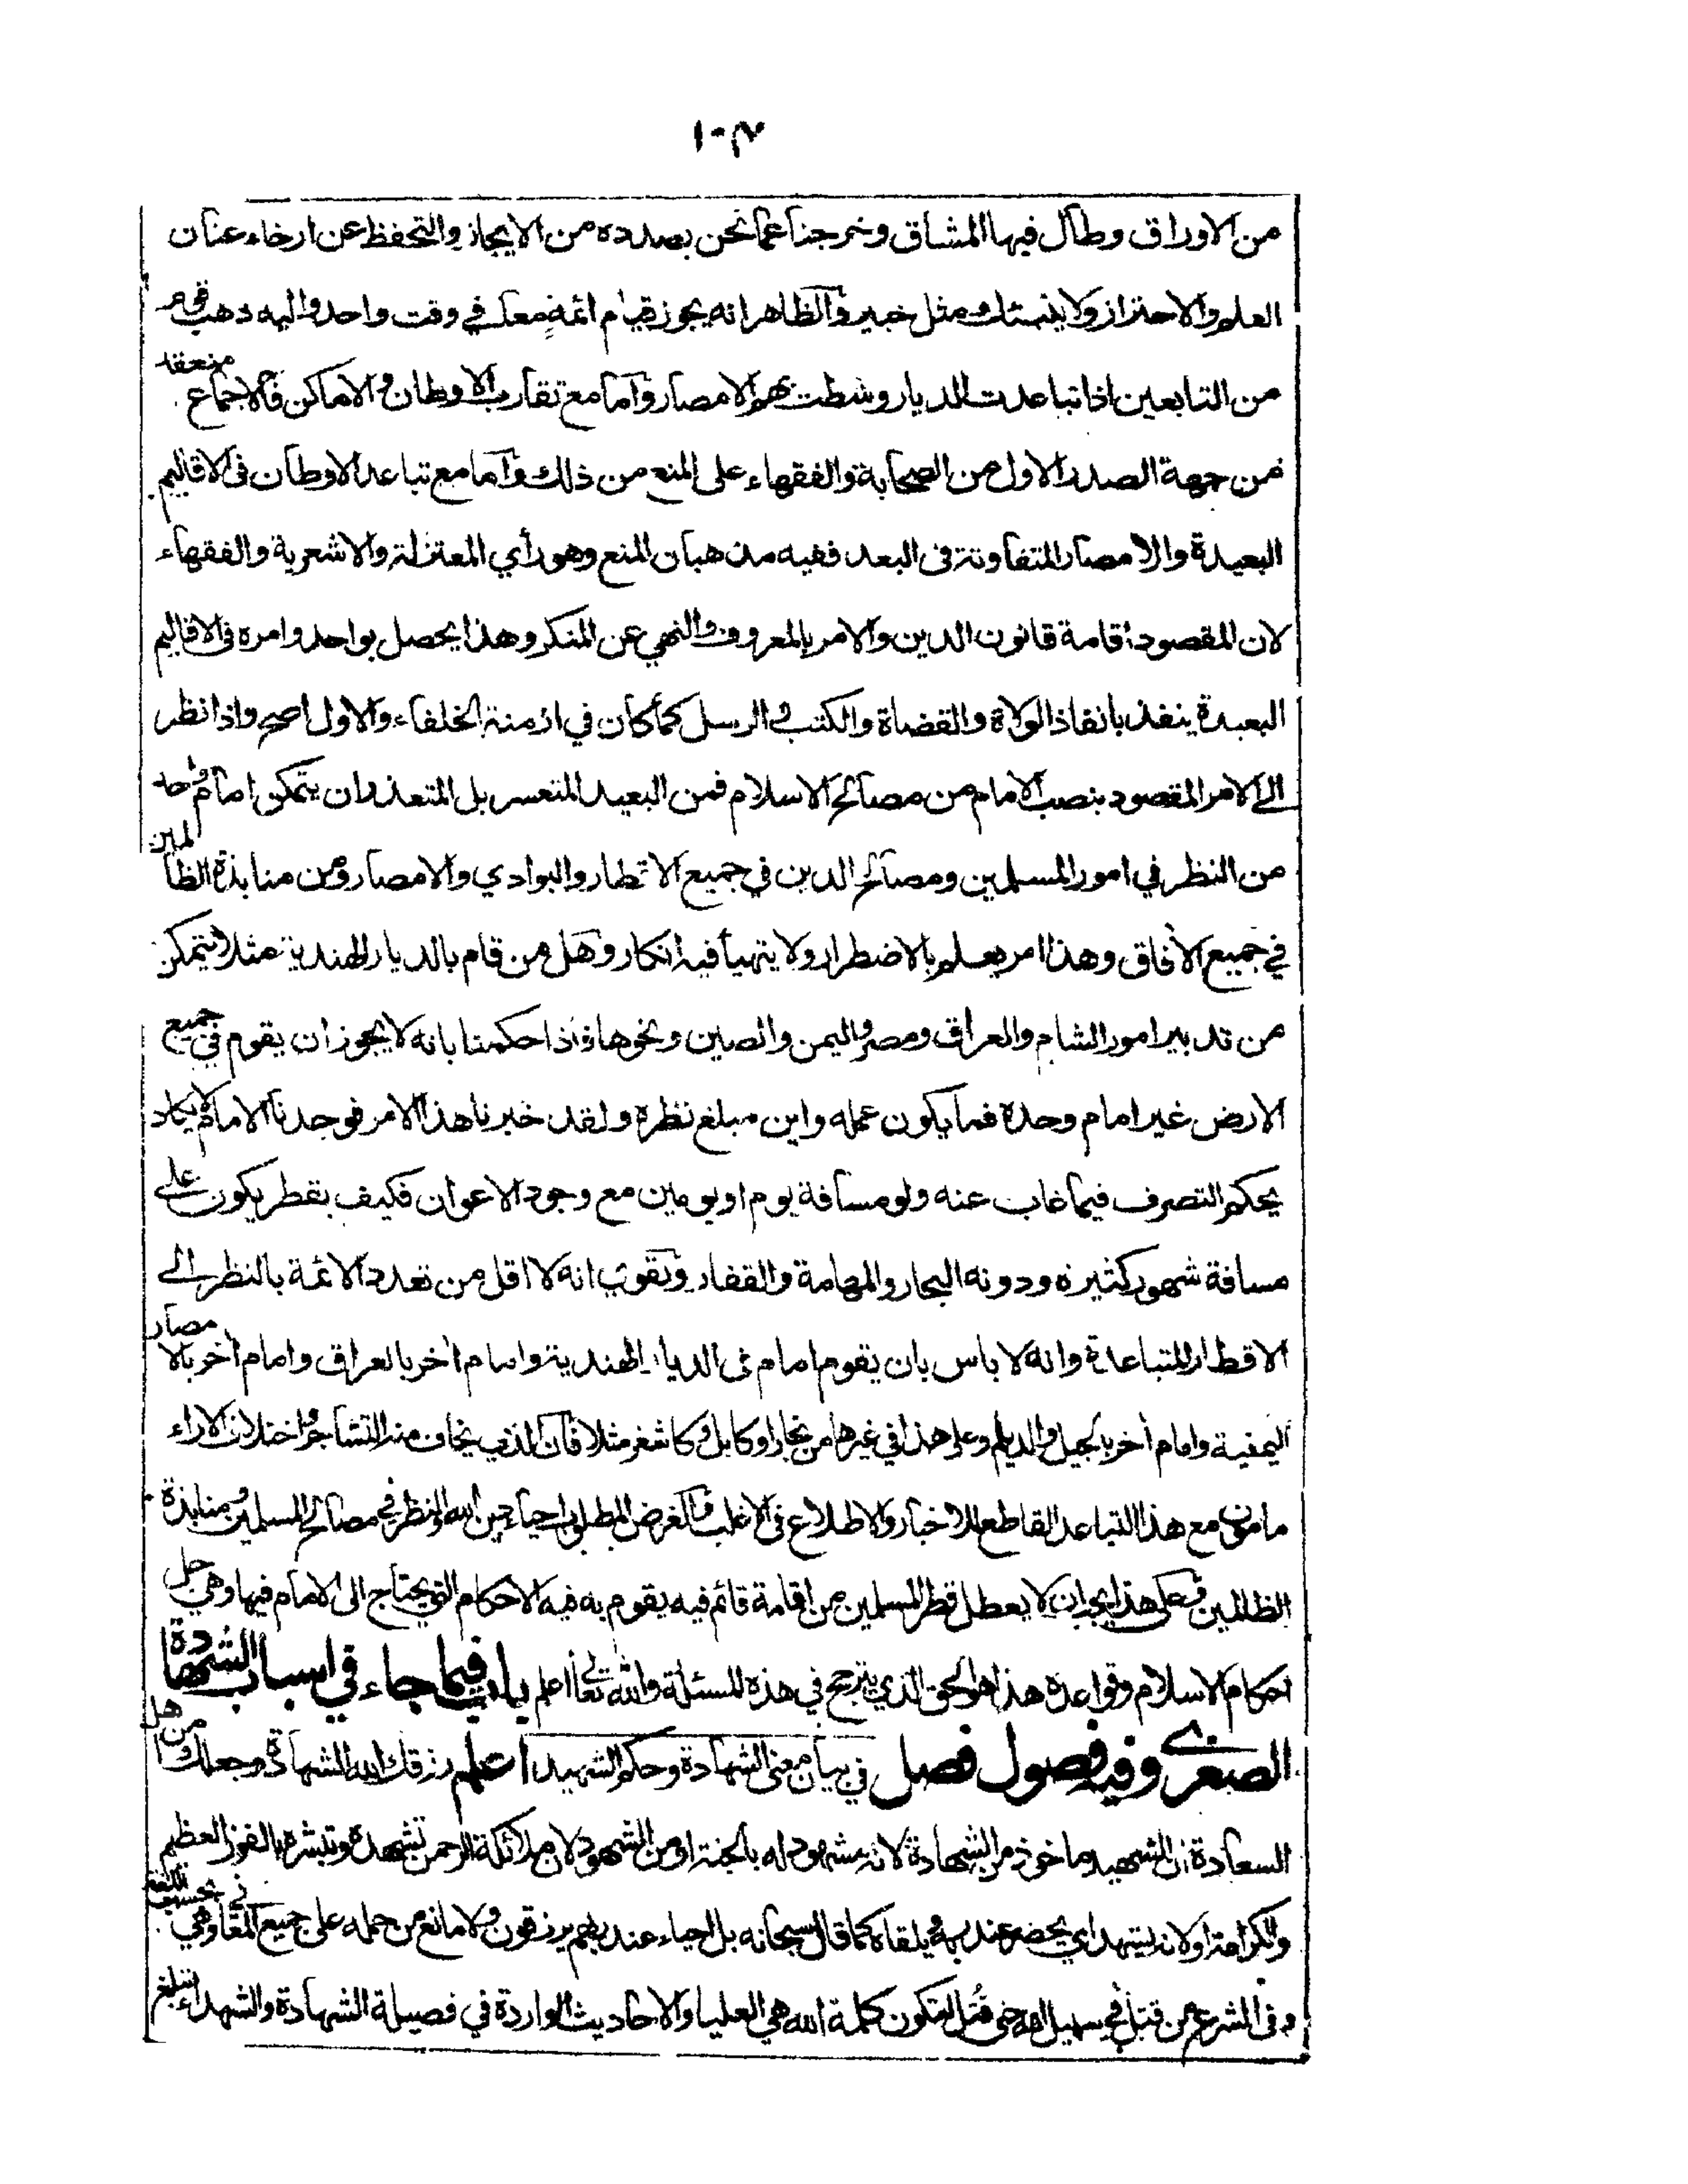 ١٠٧
من الاوراق وطال فيها المشاق وخرجنا عما نحن بصدده من الايجاز والتحفظ عن ارخاء عنان
العلم والاحتراز ولا ينبئك مثل خبير والظاهر انه يجوز قيام ائمة معا في وقت واحد واليه ذهب
من التابعين اذا تباعدت الديار وشطت بهم الامصار واما مع تقارب الاوطان والاماكن فالاجماع منعقد
من جهة الصدر الاول من الصحابة والفقهاء على المنع من ذلك واما مع تباعد الاوطان فى الاقاليم
البعيدة والامصار المتفاوتة فى البعد ففيه مذهبان المنع وهو رأي المعتزلة والاشعرية والفقهاء
لان المقصود اقامة قانون الدين والامر بالمعروف والنهي عن المنكر وهذا يحصل بواحد وامره فى الاقاليم
البعيدة ينفذ بانفاذ الولاة والقضاة والكتب والرسل كما كان في ازمنة الخلفاء والاول اصح واذا نظر
الى الامر المقصود بنصب الامام من مصالح الاسلام فمن البعيد المتعسر بل المتعذر ان يتمكن امام واحد
من النظر في امور المسلمين ومصالح الدين في جميع الاقطار والبوادي والامصار ومن منابذة الظالمين
في جميع الآفاق وهذا امر يعلم بالاضطرار ولا يتهيأ فيه انكار وهل من قام بالديار الهندية مثلا يتمكن
من تدبير امور الشام والعراق ومصر واليمن والصين ونحوها فاذا حكمنا بانه لا يجوز ان يقوم في جميع
الارض غير امام وحده فما يكون عمله واين مبلغ نظره ولقد خبرنا هذا الامر فوجدنا الامام لا يكاد
يحكم التصرف فيما غاب عنه ولو مسافة يوم او يومين مع وجود الاعوان فكيف بقطر يكون على
مسافة شهور كثيرة ودونه البحار والمهامة والقفار ونقول انه لا اقل من تعدد الائمة بالنظر الى
الاقطار المتباعدة وانه لا باس بان يقوم امام فى الديار الهندية وامام آخر بالعراق وامام آخر بالامصار
اليمنية وامام آخر بالجيل والديلم وعلى هذا في غيرها من بخارا وكابل وكاشغر مثلا فان الذي يخاف منه التشاجر واختلاف الاراء
مامون مع هذا التباعد القاطع للاخبار والاطلاع فى الاغلب والغرض المطلوب احياء دين الله والنظر في مصالح المسلمين ومنابذة
الظالمين وعلى هذا يجب ان لا يعطل قطر المسلمين من اقامة قائم فيه يقوم به فيه الاحكام التي يحتاج الى الامام فيها وهي جل
احكام الاسلام وقواعده هذا هو الحق الذي يترجح في هذه المسئلة والله تعالى اعلم باب فيما جاء في اسباب الشهادة
الصغرى وفيه فصول فصل في بيان معنى الشهادة وحكم الشهيد اعلم رزقك الله الشهادة وجعلك من اهل
السعادة ان الشهيد ماخوذ من الشهادة لانه مشهود له بالجنة او من الشهود لان ملائكة الرحمن تشهده وتبشره بالفوز العظيم
والكرامة او لانه يشهد اي يحضر عند ربه ويلقاه كما قال سبحانه بل احياء عند ربهم يرزقون ولا مانع من حمله على جميع المعاني وهي بحسب اللغة
وفى الشرع من قتل في سبيل الله حتى قتل لتكون كلمة الله هي العليا والاحاديث الواردة في فضيلة الشهادة والشهداء تبلغ